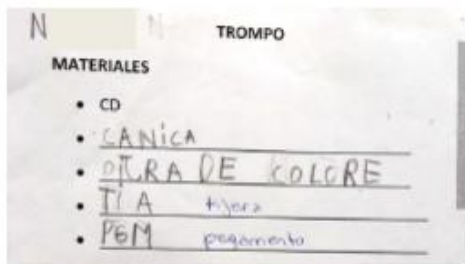 N N TROMPO
MATERIALES
• CD
• CANICA
• DE COLORE
• TI A tijera
• PGM pegamento